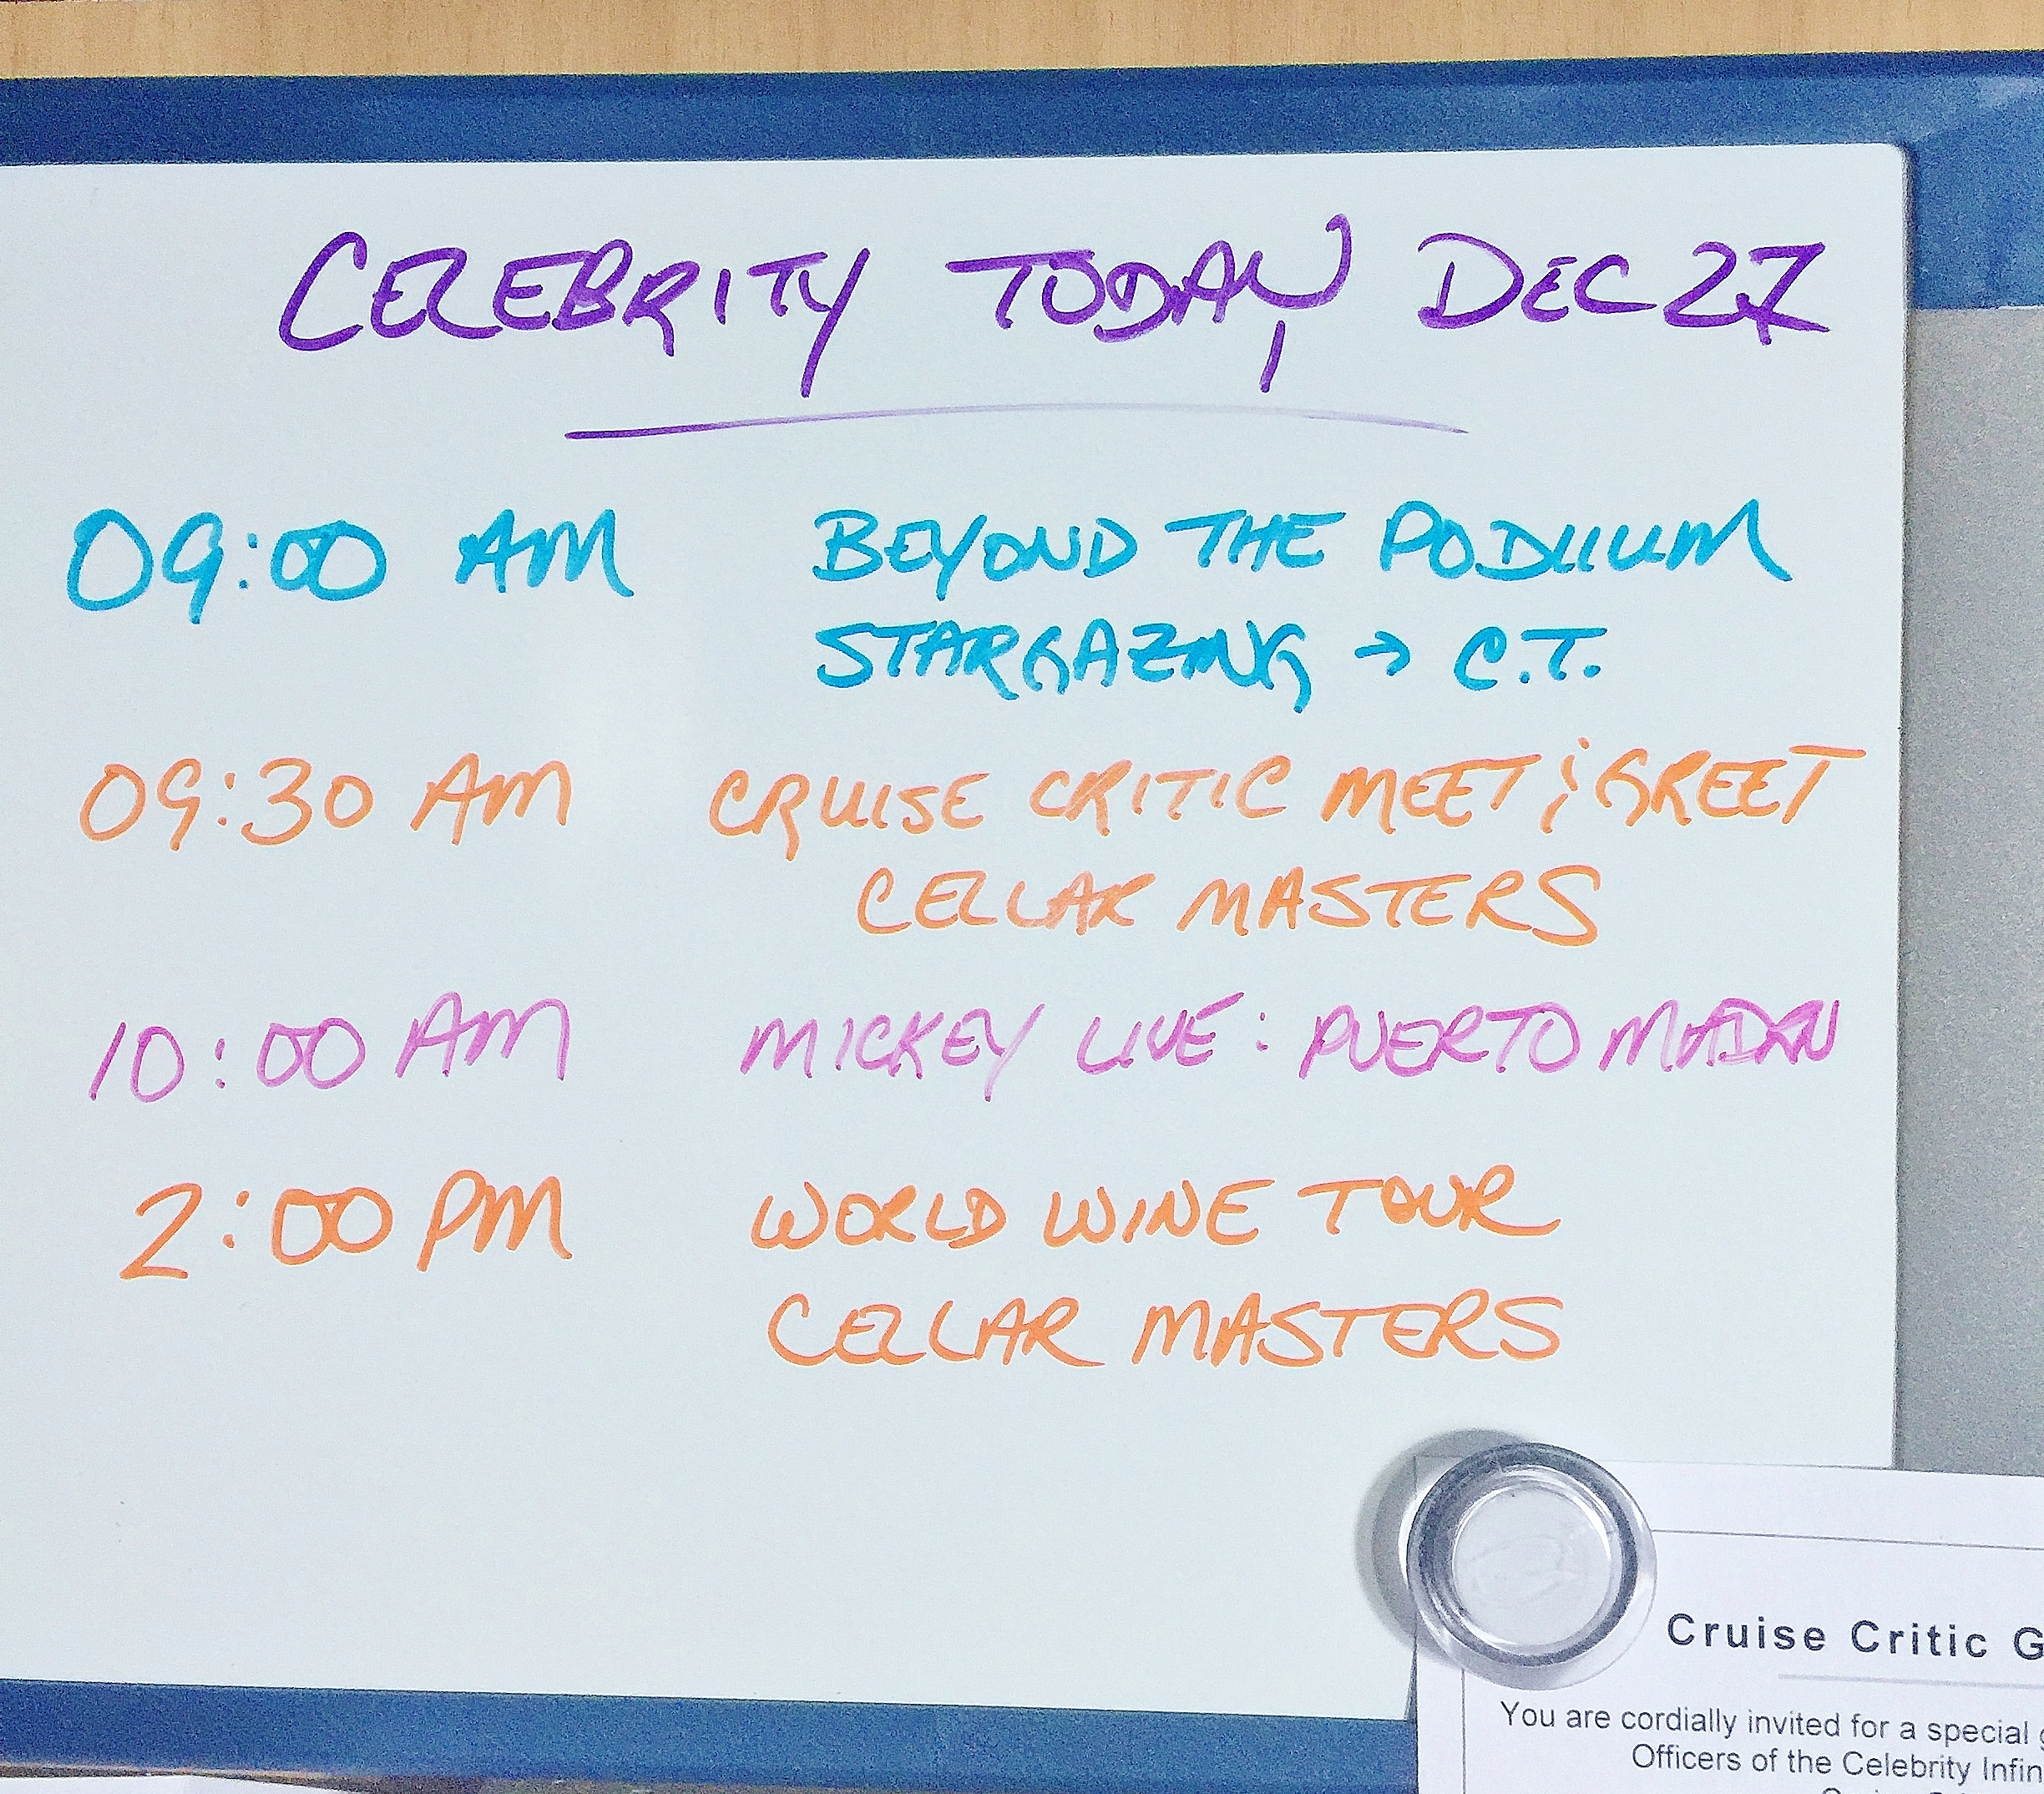 CELEBRITY TODAY DEC 27
09:00 AM BEYOND THE PODIUM
STARGAZING → C.T.
09:30 AM CRUISE CRITIC MEET & GREET
CELLAR MASTERS
10:00 AM MICKEY LIVE: PUERTO MADRYN
2:00 PM WORLD WINE TOUR
CELLAR MASTERS
Cruise Critic G
You are cordially invited for a special g
Officers of the Celebrity Infin